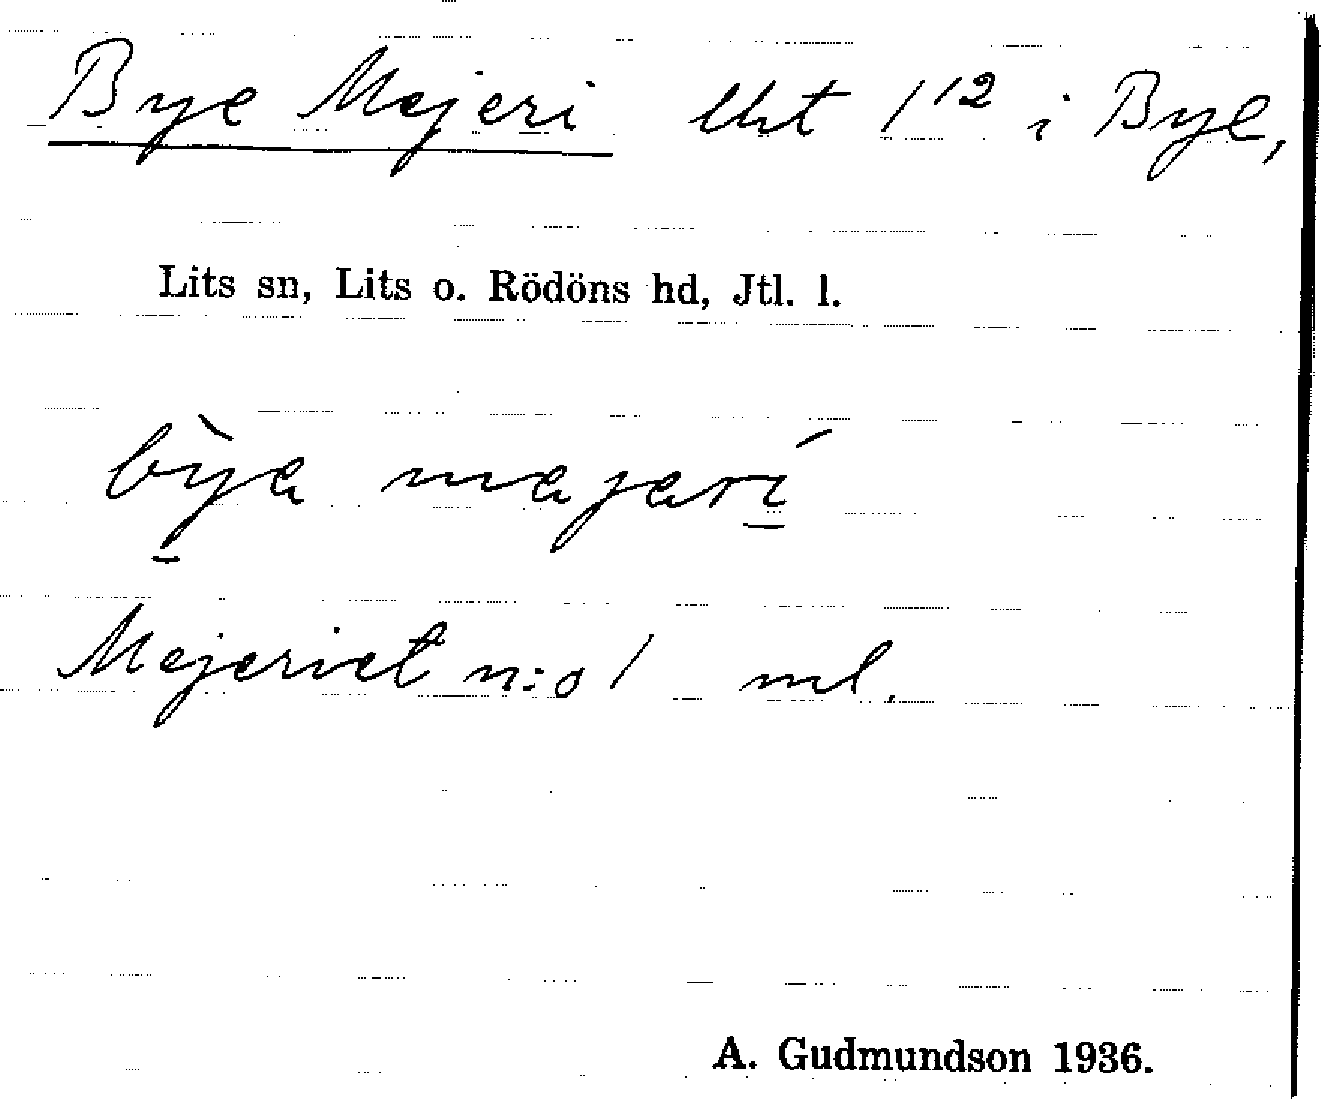 Bye Mejeri lht 1¹² i Bye,
Lits sn, Lits o. Rödöns hd, Jtl. l.
bỳa majarí
Mejeriet n:o 1 ml.
A. Gudmundson 1936.